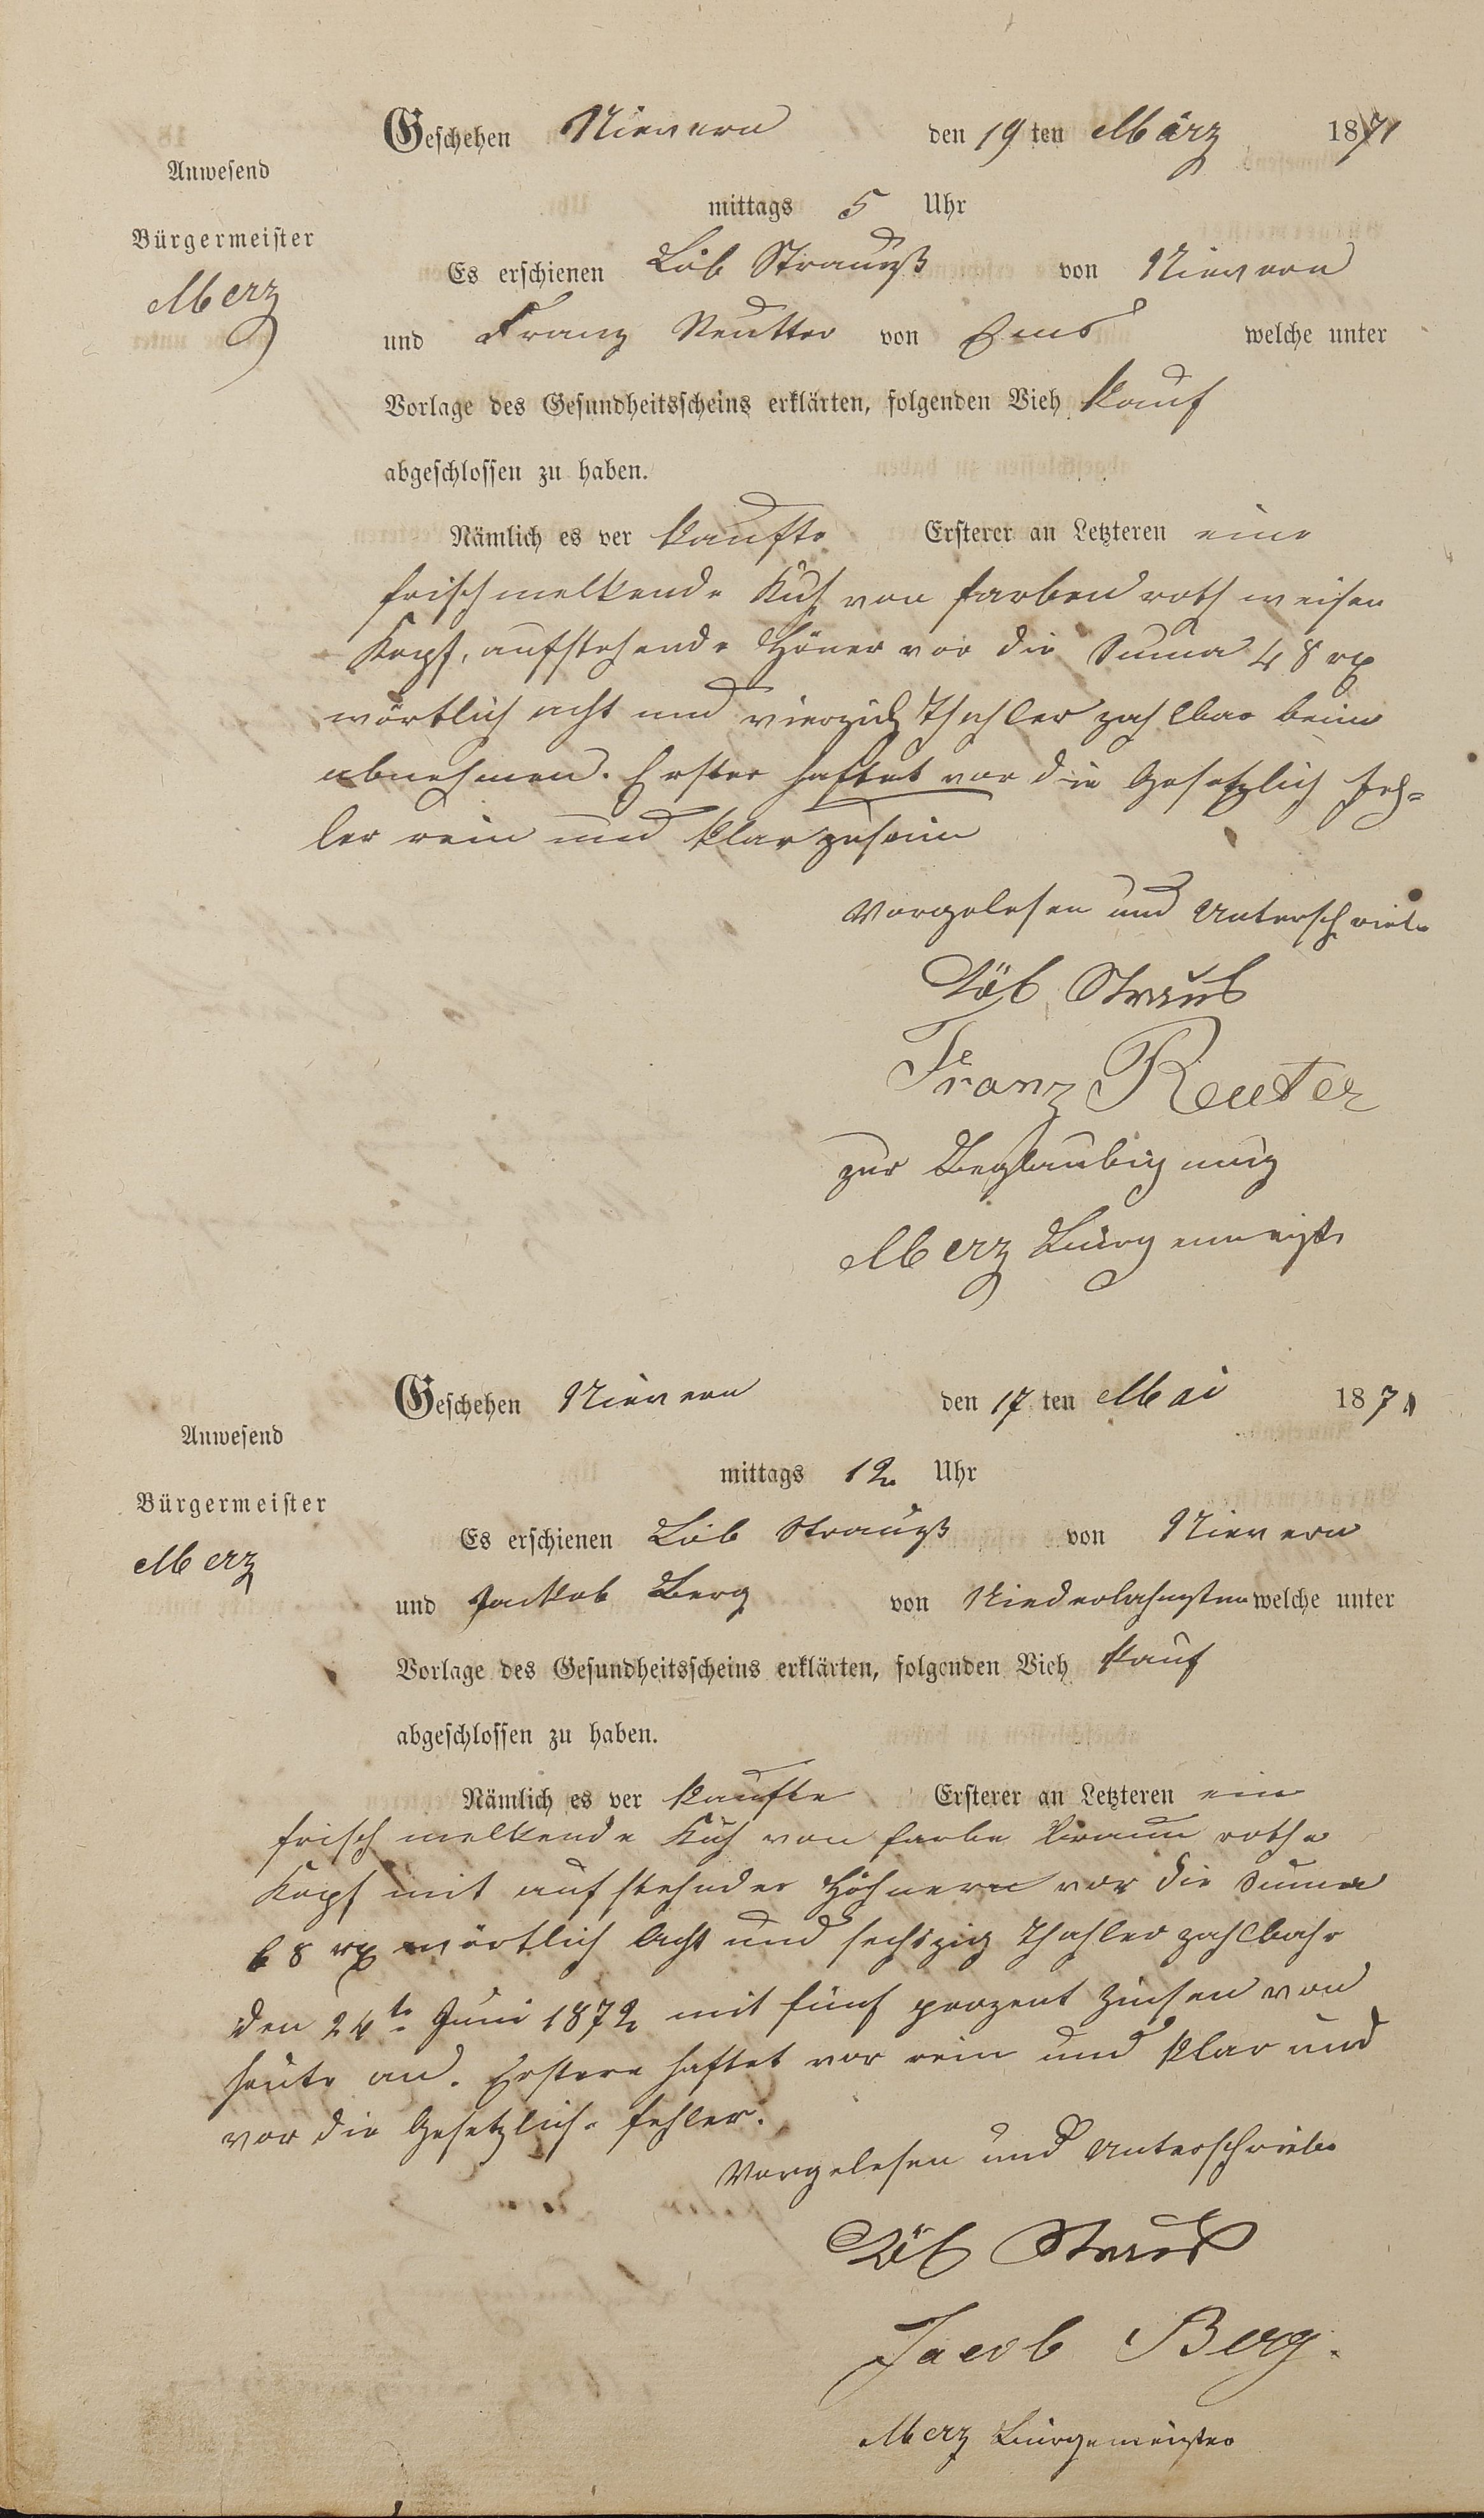 Geschehen Nievern den 19 ten März 1871
Anwesend
mittags 5 Uhr
Bürgermeister
Es erschienen Löb Straußß von Nievern
Merz
und Franz Reutter von Ems welche unter
Vorlage des Gesundheitsscheins erklärten, folgenden Vieh kauf
abgeschlossen zu haben.
Nämlich es ver kaufte Ersterer an Letzteren eine
frischmelkende Kuh von farben roth weisen
Kopf, aufstehende Höner vor die Suma 48 rx
wörtlich acht und vierzich Thahler zahlbar beim
abnehmen. Erster haftet vor die Gesetzlich feh=
ler rein und klar zu sein
Vorgelesen und Unterschriebe
Löb Straus
Franz Reuter
zur Beglaubigung
Merz Bürgermeister
Geschehen Nievern den 17 ten Mai 1871
Anwesend
mittags 12 Uhr
Bürgermeister
Es erschienen Löb Straußß von Nievern
Merz
und Jackob Berg von Niederlahnstein welche unter
Vorlage des Gesundheitsscheins erklärten, folgenden Vieh kauf
abgeschlossen zu haben.
Nämlich es ver kaufte Ersterer an Letzteren eine
frisch melkende Kuh von farbe braun rothe
Kopf mit aufstehnder Höhnern vor die Suma
68 rx wörtlich Acht und sechszig Thahler zahlbahr
den 24te Juni 1872 mit fünf prozent Zinsen von
heute an. Erstere haftet vor rein und klar und
vor die Gesetzliche fehler.
Vorgelesen und Unterschriebe
Löb Straus
Jacob Berg.
Merz Bürgemeister